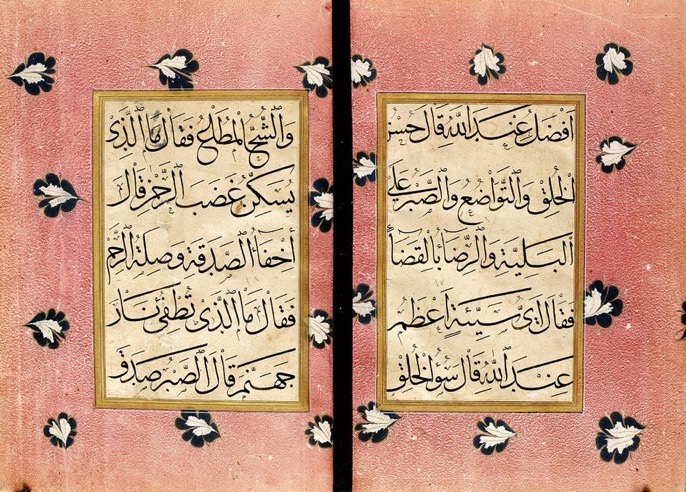 افضل عند الله قال حسن
الخلق والتواضع والصبر على
البلية والرضاء بالقضاء
فقال اى سيئة اعظم
عند الله قال سوء الخلق
والشح المطاع فقال ما الذى
يسكن غضب الرحمن قال
اخفاء الصدقة وصلة الرحم
فقال ما الذى تطفى نار
جهنم قال الصبر صدق